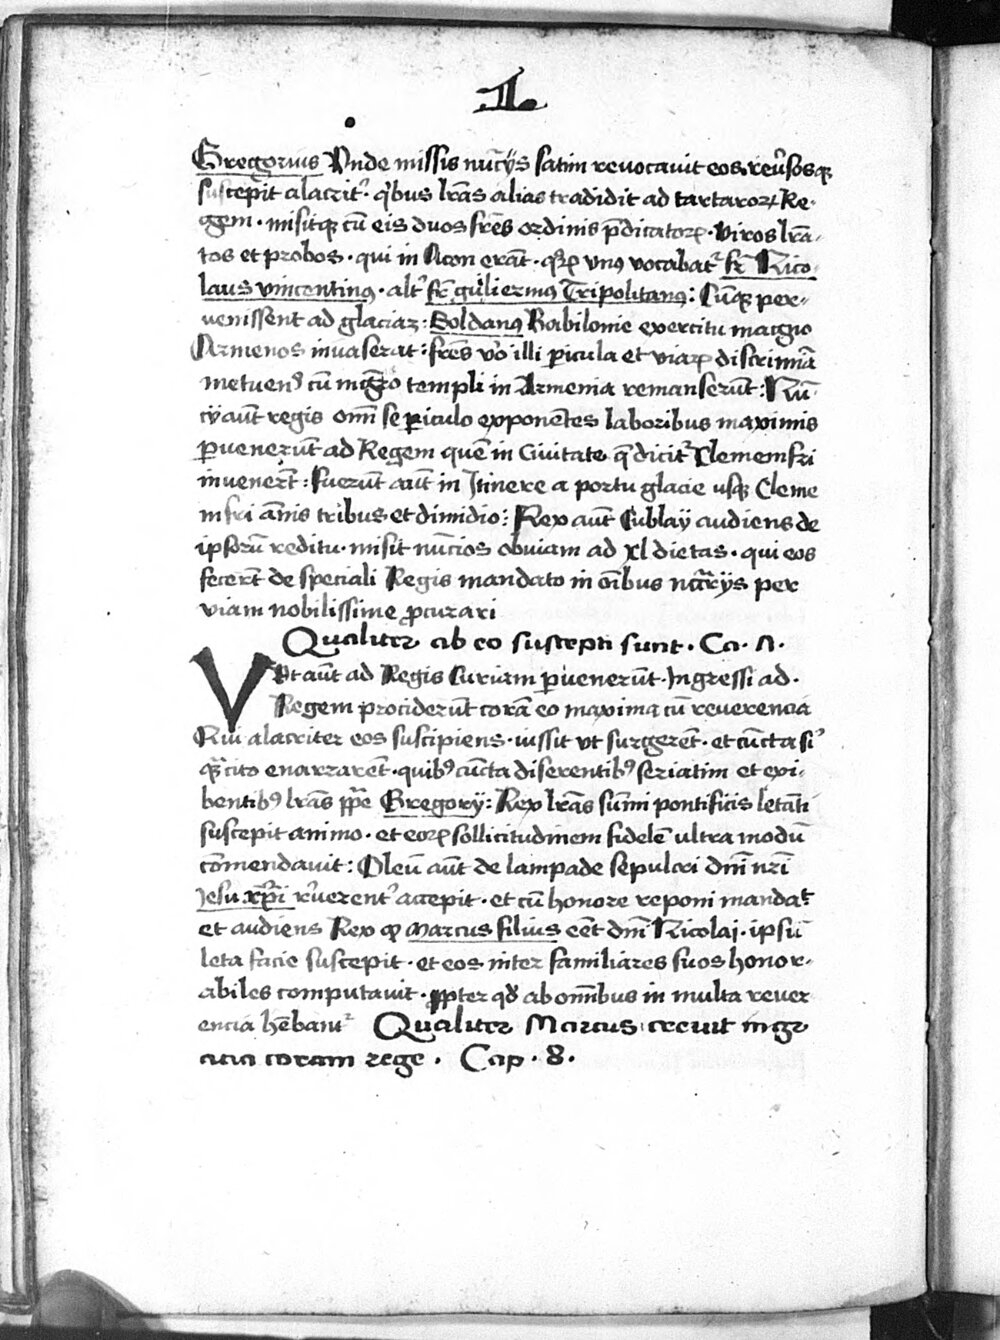 .1.
Gregorius Vnde missis nūcijs satim revocavit eos revˀsosqꝫ
suscepit alacritˀ. qˀbus lrās alias tradidit ad tartaroꝝ Re-
gem. misitqꝫ cū eis duos frēs ordinis p̄dicatoꝝ. viros lrā-
tos et probos. qui in Acon erāt. qꝝ vnꝰ vocabatˀ fr̄ Nico-
laus vincentinꝰ. altˀ fr̄ gulielmꝰ Tripolitanꝰ: Cūqꝫ per-
venissent ad glaciaꝫ: Soldanꝰ Babilonie exercitu magno
Armenos invaserat: frēs v̊o illi pericula et viaꝝ discrimīa
metuenˀ cū mgr̄o templi in Armenia remanserūt: Nū-
cij aūt regis om̄i se periculo exponētes laboribus maximis
pervenerūt ad Regem quē in Civitate q̄ dicitˀ Clemenfri
invenerūt: Fuerūt aūt in Itinere a portu glacie usqꝫ Cleme
mfri annis tribus et dimidio: Rex aūt Cublaÿ audiens de
ipsorū reditu. misit nūcios obviam ad xl dietas. qui eos
fecerūt de speciali Regis mandato in oībus nc̄cr̄ijs per
viam nobilissime ꝓcurari
Qualiter ab eo suscepti sunt. Ca. 7.
Vt aūt ad Regis Curiam pervenerūt. Ingressi ad.
Regem prociderūt corā eo maxima cū reverencia
Qui alacriter eos suscipiens. iussit vt surgerēt. et cūcta siˀ
qꝫ cito enarrarēt. quibꝰ cūcta diserentibꝰ seriatim et exi-
bentibꝰ lrās pp̄e Gregorij: Rex lrās sūmi pontificis letāti
suscepit animo. et eoꝝ sollicitudinem fidelē ultra modū
cōmendavit: Oleū aūt de lampade sepulcri dnī nrī
Jesu xp̄i rˀverentˀ accepit. et cū honore reponi mandaᵗ
et audiens Rex ꝙ marcus filius eēt dnī Nicolaj. ipsū
leta facie suscepit. et eos inter familiares suos honor-
abiles computavit. ꝓpter qđ ab om̄ibus in multa rever
encia hēbantˀ Qualiter Marcus crevit in gr
acia coram rege. Cap. 8.